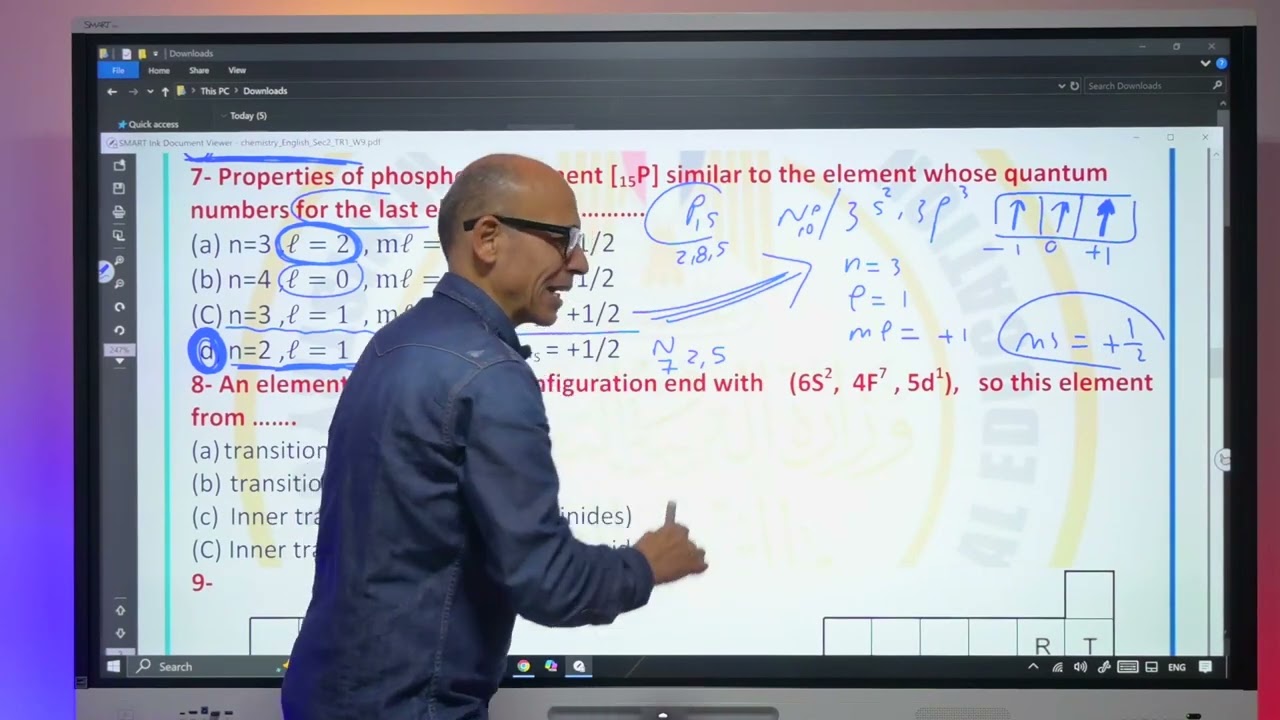 SMART
Downloads
File Home Share View
This PC > Downloads
Search Downloads
Quick access
Today (5)
SMART Ink Document Viewer - chemistry_English_Sec2_TR1_W9.pdf
7- Properties of phosph ent [₁₅P] similar to the element whose quantum
numbers for the last e ............
(a) n=3 ,ℓ = 2 , mℓ = 1/2
(b) n=4 ,ℓ = 0 , mℓ = 1/2
(C) n=3 ,ℓ = 1 , m +1/2
(d) n=2 ,ℓ = 1 s = +1/2
P₁₅
2,8,5
Ne₁₀/3s², 3p³
-1 0 +1
n = 3
ℓ = 1
mℓ = +1
ms = +1/2
N₇ 2,5
8- An element nfiguration end with (6S², 4F⁷ , 5d¹), so this element
from .......
(a) transition
(b) transitio
(c) Inner tra inides)
(C) Inner tra
9-
R T
247%
وزارة التربية
AL ED
Search
ENG